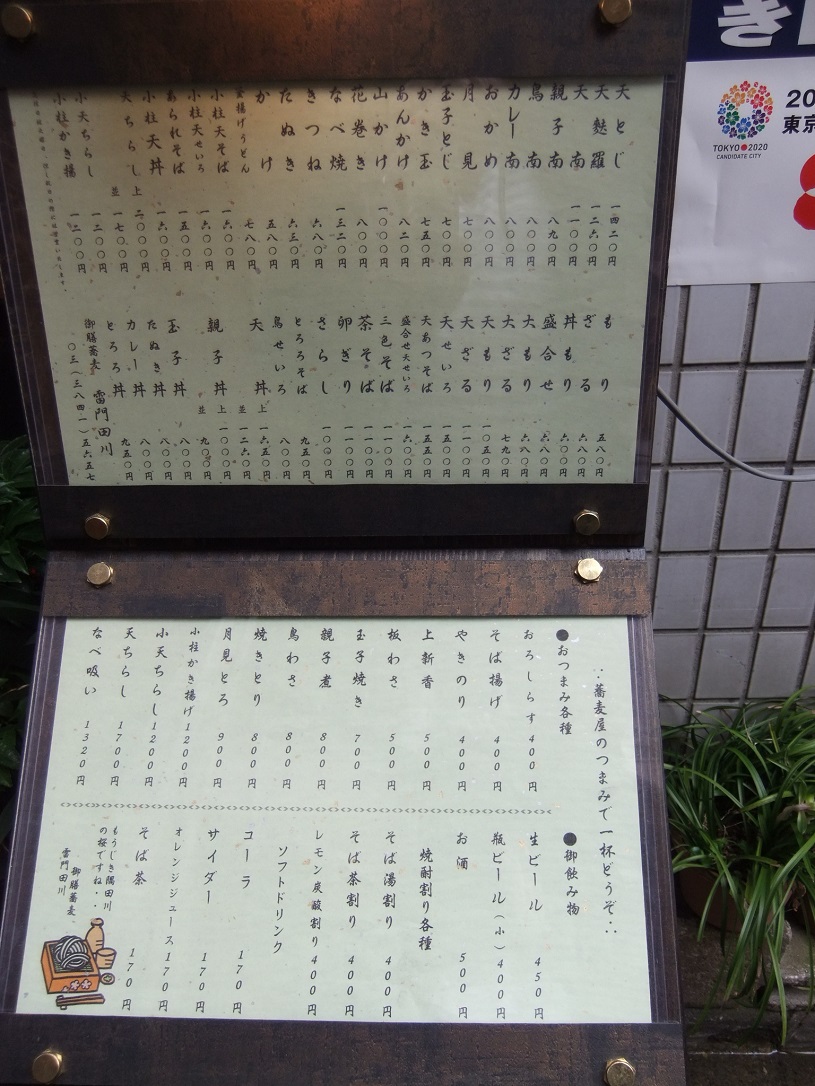 天とじ 一四二〇円
天麩羅 一二六〇円
天南 一一〇〇円
親子南 八九〇円
鳥南 八〇〇円
カレー南 八〇〇円
おかめ 八〇〇円
月見 七〇〇円
玉子とじ 七〇〇円
かき玉 七五〇円
あんかけ 八二〇円
山かけ 一〇〇〇円
花巻き 八〇〇円
なべ焼 一三二〇円
きつね 六八〇円
たぬき 六三〇円
かけ 五八〇円
釜揚げうどん 七八〇円
小柱天そば 一六〇〇円
小柱天せいろ 一六〇〇円
あられそば 一五〇〇円
小柱天丼 一六〇〇円
天ちらし 上 二〇〇〇円
並 一七〇〇円
小天ちらし 一二〇〇円
小柱かき揚 一二〇〇円
もり 五八〇円
ざる 六八〇円
丼もり 六〇〇円
盛合せ 六八〇円
大もり 六八〇円
大ざる 七九〇円
天もり 一〇五〇円
天ざる 一一〇〇円
天せいろ 一五〇〇円
天あつそば 一五五〇円
盛合せ天せいろ 一六〇〇円
三色そば 一一〇〇円
茶そば 一一〇〇円
卵ぎり 一一〇〇円
さらし 一〇〇〇円
とろろそば 九五〇円
鳥せいろ 八〇〇円
天丼 上 一六五〇円
並 一二六〇円
親子丼 上 一〇〇〇円
並 九〇〇円
玉子丼 八〇〇円
たぬき丼 八〇〇円
カレー丼 八〇〇円
とろろ丼 九五〇円
御膳蕎麦 雷門田川
〇三(三八四一)五六五七
∴蕎麦屋のつまみで一杯どうぞ∴
●おつまみ各種
おろしらす 400円
そば揚げ 400円
やきのり 400円
上新香 500円
板わさ 500円
玉子焼き 700円
親子煮 800円
鳥わさ 800円
焼きとり 800円
月見とろ 900円
小柱かき揚げ 1200円
小天ちらし 1200円
天ちらし 1700円
なべ吸い 1320円
●御飲み物
生ビール 450円
瓶ビール(小) 400円
お酒 500円
焼酎割り各種
そば湯割り 400円
そば茶割り 400円
レモン炭酸割り 400円
ソフトドリンク
コーラ 170円
サイダー 170円
オレンジジュース 170円
そば茶 170円
もうじき隅田川
の桜ですね・・
御膳蕎麦
雷門田川
TOKYO 2020
CANDIDATE CITY
20
東京
き